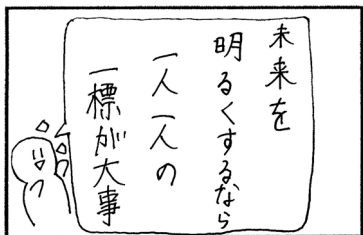 未来を
明るくするなら
一人一人の
一標が大事